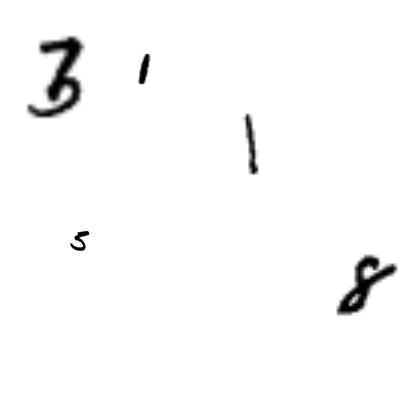 3 1
1
5
8